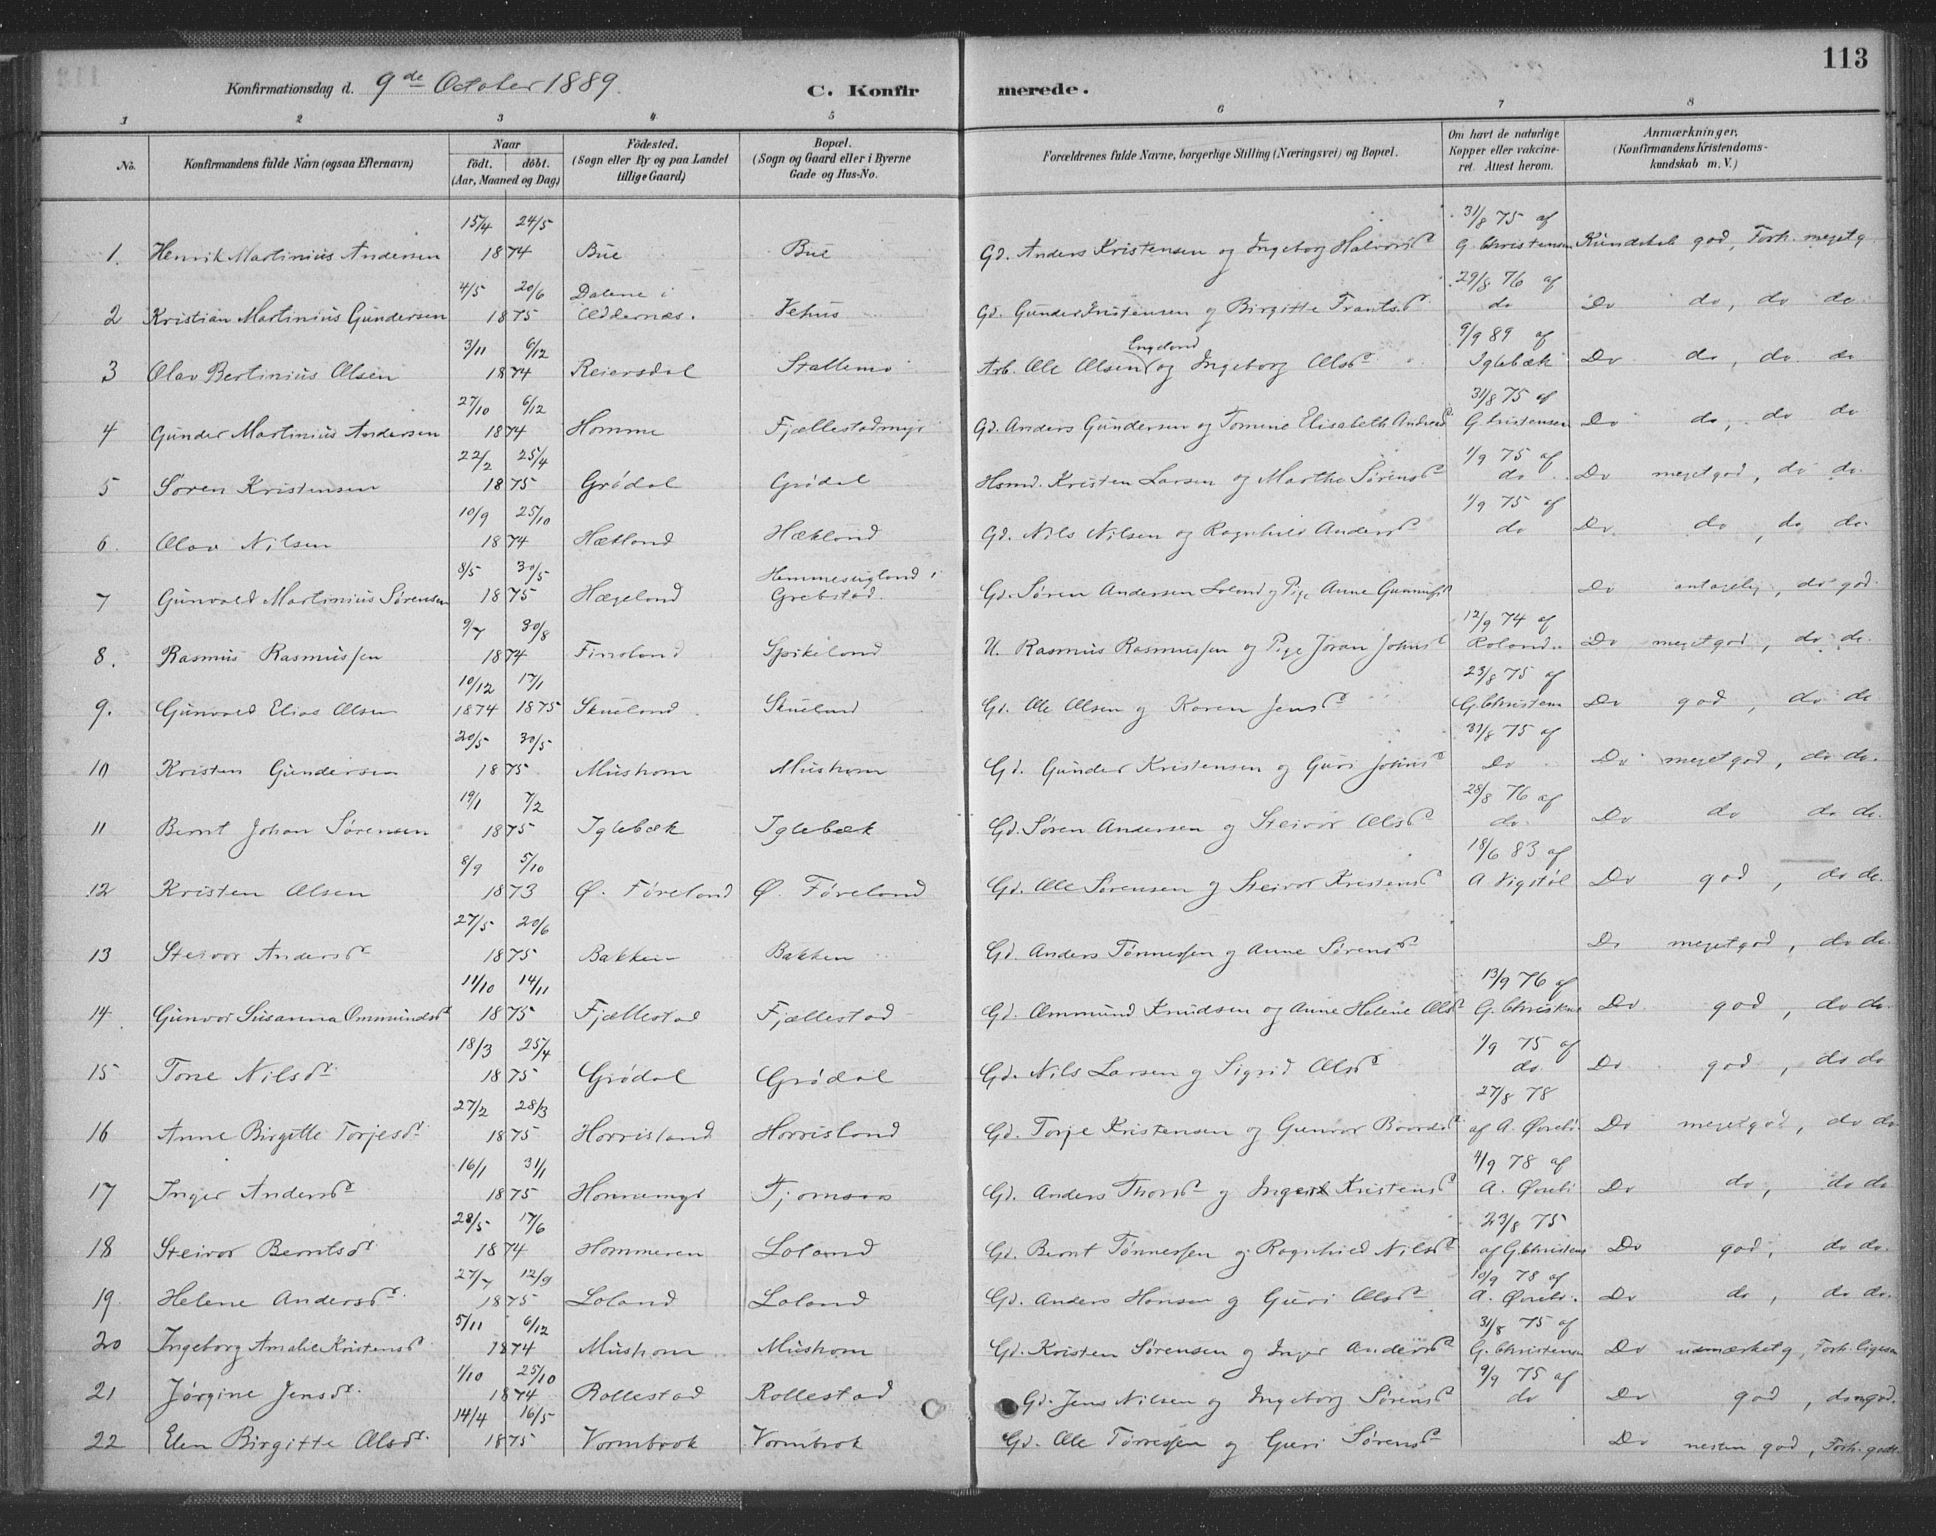 113
Konfirmationsdag d. 9de October 1889. C. Konfirmerede.
1 2 3 4 5 6 7 8
No. Konfirmandens fulde Navn (ogsaa Efternavn) Naar født. døbt. (Aar, Maaned og Dag) Födested. (Sogn eller By og paa Landet tillige Gaard) Bopæl. (Sogn og Gaard eller i Byerne Gade og Hus-No. Forældrenes fulde Navne, borgerlige Stilling (Næringsvei) og Bopæl. Om havt de naturlige Kopper eller vakcineret. Attest herom. Anmærkninger, (Konfirmandens Kristendomskundskab m. V.)
15/4 24/5 31/8 75 af
1. Henrik Martinius Andersen 1874 Bue Bue Gd. Anders Kristensen og Ingeborg Halvorsd G. Christensen Kundskab god, Forh. meget g.
4/5 20/6 Dalene i 29/8 76 af
2 Kristian Martinius Gundersen 1875 Oddernæs. Vehus Gd. Gunder Kristensen og Birgitte Frantsd. do Do do, do do.
3/11 6/12 Engeland 9/9 89 af
3 Olav Bertinius Olsen 1874 Reiersdal Stallemo Arb. Ole Olsen og Ingeborg Olsd Iglebæk Do do, do do
27/10 6/12 31/8 75 af
4 Gunder Martinius Andersen 1874 Homme Fjællestadmyr Gd. Anders Gundersen og Tomine Elisabeth Andersd G. Christensen Do do, do do
22/2 25/4 1/9 75 af
5 Søren Kristensen 1875 Grødal Grødal Hsmd. Kristen Larsen og Marthe Sørensd do Do meget god, do do.
10/9 25/10 1/9 75 af
6. Olav Nilsen 1874 Hækland Hækland Gd. Nils Nilsen og Ragnhild Andersd do Do. do, do do.
8/5 30/5 i
7 Gunvald Martinius Sørensen 1875 Hægeland Grebstad. Gd. Søren Andersen Loland og Pige Anne Do antagelig, do god.
9/7 30/8 12/9 74 af
8. Rasmus Rasmussen 1874 Finsland Spikeland U. Rasmus Rasmussen og Pige Joran Johnsd Roland. Do meget god, do do.
10/12 17/1 23/8 75 af
9. Gunvald Elias Olsen 1874 1875 Skueland Skueland Gd. Ole Olsen og Karen Jensd G. Christens Do god, do do.
20/5 30/5 31/8 75 af
10 Kristen Gundersen 1875 Mushom Mushom Gd. Gunder Kristensen og Guri Johnsd Do Do meget god, do do.
19/1 7/2 28/8 76 af
11 Bernt Johan Sørensen 1875 Iglebæk Iglebæk Gd. Søren Andersen og Steivor Olsd do. Do do do do.
8/9 5/10 18/6 83 af
12 Kristen Olsen 1873 Ø. Føreland Ø. Føreland Gd. Ole Sørensen og Steivor Kristensd A. Vigstøl Do god, do do.
27/5 20/6
13 Steivor Andersd 1875 Bakken Bakken Gd. Anders Tønnessen og Anne Sørensd Do meget god, do do.
11/10 14/11 13/9 76 af
14. Gunvor Susanna Ommundsd 1875 Fjællestad Fjællestad Gd. Ommund Knudsen og Anne Helene Olsd G. Christens Do. god, do do.
18/3 25/4 1/9 75 af
15 Tone Nilsd. 1875 Grødal Grødal Gd. Nils Larsen og Sigrid Olsd do. Do. god, do do
27/2 28/3 27/8 78
16 Anne Birgitte Torjesd. 1875 Horrisland Horrisland Gd. Torje Kristensen og Gunvor Baardsd af A. Øvrebø Do meget god, do do
16/1 31/1 4/9 78 af
17 Inger Andersd 1875 Honnemyr Tjomsaas Gd. Anders Thorsd og Kristensd A. Øvrebø Do do, do do
28/5 17/6 23/8 75
18 Steivor Berntsd. 1874 Hommeren Loland Gd. Bernt Tønnessen og Ragnhild Nilsd af G. Christens Do god, do do.
27/7 12/9 10/9 78 af
19. Helene Andersd. 1875 Loland Loland Gd. Anders Hansen og Guri Olsd A. Øvrebø. Do do, do do.
5/11 6/12 31/8 75 af
20 Ingeborg Amalie Kristensd. 1874 Mushom Mushom Gd. Kristen Sørensen og Inger Andersd G. Christensen Do udmærket g, Forh. ligesaa
1/10 25/10 9/9 75 af
21 Jørgine Jensd. 1874 Rollestad Rollestad Gd. Jens Nilsen og Ingeborg Sørensd do Do god, do god.
14/4 16/5
22 Elen Birgitte Olsd. 1875 Vormbrok Vormbrok Gd. Ole Tørressen og Guri Sørensd Do nesten god, Forh. godt.